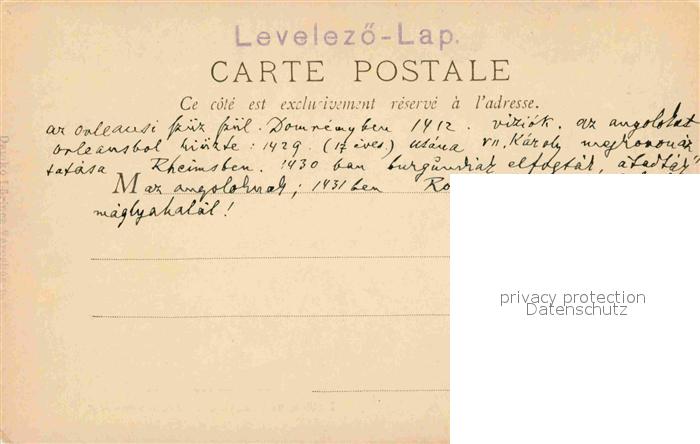 Levelező-Lap.
CARTE POSTALE
Ce côté est exclusivement réservé à l'adresse.
az orleansi szűz szül. Domrémyben 1412. víziók. az angolokat
orleansból kiűzte: 1429. (17 éves) utána VII. Károly megkoronáz
tatása Rheimsben. 1430 ban burgundiak elfogták, átadták
M az angoloknak; 1431 ben
máglyahalál!
privacy protection
Datenschutz